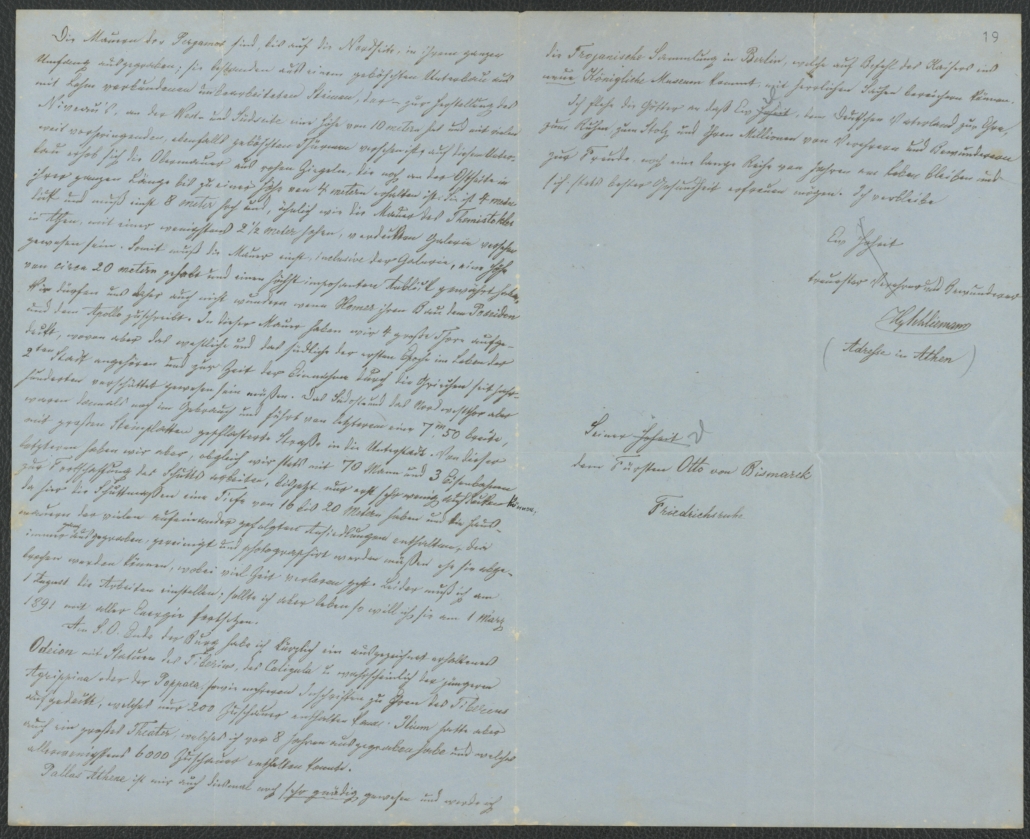 Die Mauern der Pergamos sind, bis auf die Nordseite, in ihrem ganzen
Umfang ausgegraben; sie bestanden aus einem geböschten Unterbau aus
mit Lehm verbundenen unbearbeiteten Steinen, der – zur Herstellung des
Niveau's, an der West- und Südseite eine Höhe von 10 metern hat und mit vielen
weit vorspringenden, ebenfalls geböschten Thürmen versehen ist; auf diesem Unter-
bau erhob sich die Obermauer aus rohen Ziegeln, die noch an der Ostseite in
ihrer ganzen Länge bis zu einer Höhe von 4 metern erhalten ist; die ist 4 meter
dick und muß einst 8 meter hoch und, ähnlich wie die Mauer des Themistokles
in Athen, mit einer wenigstens 2 1/2 meter hohen, verdeckten Galerie versehen
gewesen sein. Somit muß die Mauer einst, inclusive der Galerie, eine Höhe
von circa 20 metern gehabt und einen höchst imposanten Anblick gewährt haben.
Wir dürfen uns daher auch nicht wundern wenn Homer ihren Bau dem Poseidon
und dem Apollo zuschreibt. In dieser Mauer haben wir 4 große Thore aufge-
deckt, wovon aber das westliche und das südliche der ersten Epoche im Leben der
2ten Stadt angehören und zur Zeit der Einnahme durch die Griechen seit Jahr-
hunderten verschüttet gewesen sein müßen. Das Südost und das Nordwestthor aber
waren damals noch im Gebrauch und führt von letzterem eine 7m,50 breite,
mit großen Steinplatten gepflasterte Straße in die Unterstadt. Von dieser
letztern haben wir aber, obgleich wir stets mit 70 Mann und 3 Eisenbahnen
zur Fortschaffung des Schutts arbeiten, bisjetzt nur erst sehr wenig aufdecken können,
da hier die Schuttmaßen eine Tiefe von 16 bis 20 Metern haben und die Haus-
mauern der vielen aufeinander gefolgten Ansiedlungen enthalten, die
immer ausgegraben, gereinigt und photographirt werden müßen ehe sie abge-
brochen werden können, wobei viel Zeit verloren geht. Leider muß ich am
1 August die Arbeiten einstellen, sollte ich aber leben so will ich sie am 1 März
1891 mit aller Energie fortsetzen.
Am S.O. Ende der Burg habe ich kürzlich ein ausgezeichnet erhaltenes
Odeion mit Statuen des Tiberius, des Caligula u wahrscheinlich der jüngeren
Agrippina oder der Poppaea, sowie mehreren Inschriften zu Ehren des Tiberius
aufgedeckt, welches nur 200 Zuschauer enthalten kann. Ilium hatte aber
auch ein großes Theater, welches ich vor 8 Jahren ausgegraben habe und welches
allerwenigstens 6000 Zuschauer enthalten konnte.
Pallas Athene ist mir auch diesmal noch sehr gnädig gewesen und werde ich
19
die Trojanische Sammlung in Berlin, welche auf Befehl des Kaisers ins
neue Königliche Museum kommt, mit herrlichen Sachen bereichern können.
Ich flehe die Götter an daß Ew Hoheit, dem Deutschen Vaterland zur Ehre,
zum Ruhm, zum Stolz und Ihren Millionen von Verehrern und Bewunderern
zur Freude, noch eine lange Reihe von Jahren am Leben bleiben und
sich stets bester Gesundheit erfreuen mögen. Ich verbleibe
Ew Hoheit
treuester Verehrer und Bewunderer
HySchliemann
(Adresse in Athen)
Seiner Hoheit
dem Fürsten Otto von Bismarck
Friedrichsruh